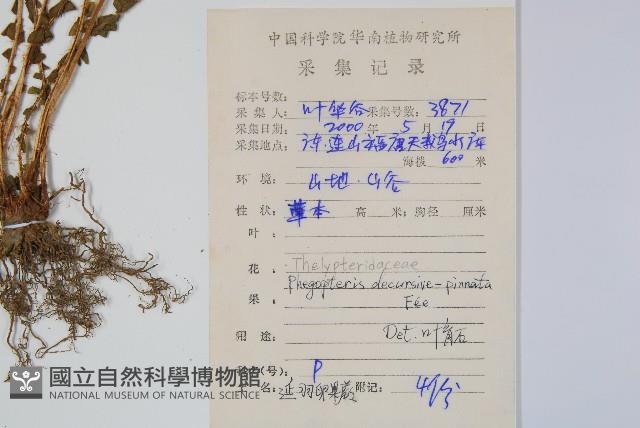 中国科学院华南植物研究所
采集记录
标本号数:
采集人: 叶华谷 采集号数: 3871
采集日期: 2000 年 5 月 19 日
采集地点:
海拨 600 米
环境: 山地.山谷
性状: 草本 高 米; 胸径 厘米
叶
花 Thelypteridaceae
Phegopteris decursive-pinnata
果 Fée
用途 Det. 叶
P
名: 附记: 4份
國立自然科學博物館
NATIONAL MUSEUM OF NATURAL SCIENCE